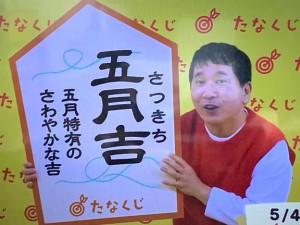 たなくじ
たなくじ
さつきち
五月吉
五月特有の
さわやかな吉
たなくじ
5/4